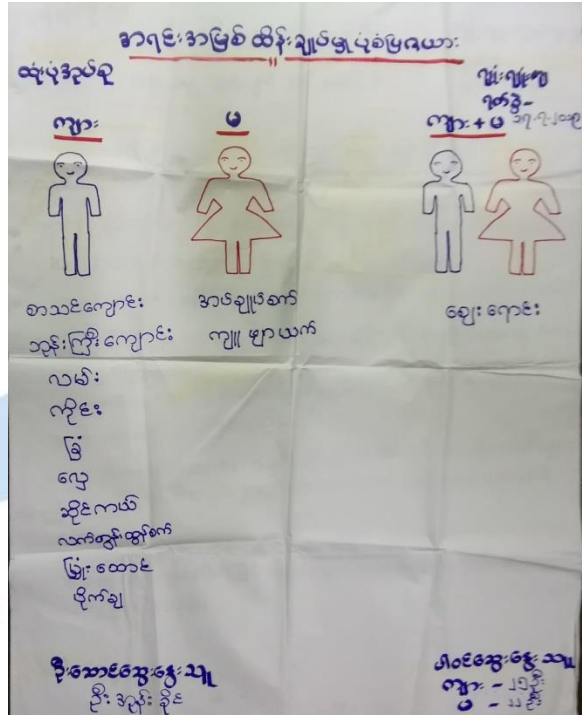 အရင်းအမြစ် ထိန်းချုပ်မှု ပုံစံပြဇယား
ထုံးပုံအုပ်စု
ကျား
မ
ကျား + မ
စာသင်ကျောင်း
ဘုန်းကြီးကျောင်း
လမ်း
ကိုင်း
ခြံ
လှေ
ဆိုင်ကယ်
လက်တွန်းထွန်စက်
မြှုံးထောင်
ပိုက်ချ
အပ်ချုပ်စက်
ကျူ ဖျာ ယက်
ဈေး ရောင်း
ဦးဆောင်ဆွေးနွေးသူ
ဦးအုန်းခိုင်
ပါဝင်ဆွေးနွေးသူ
ကျား - ၂၅ဦး
မ - ၁၂ဦး